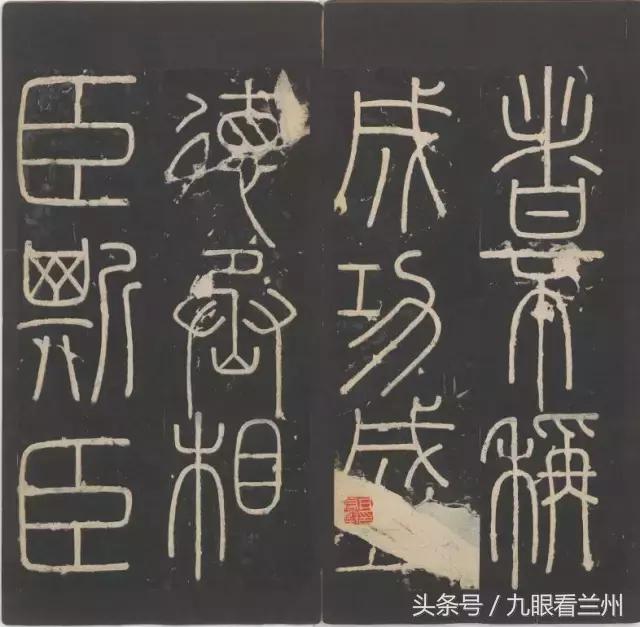 者不稱
成功盛
德丞相
臣斯臣
头条号 / 九眼看兰州